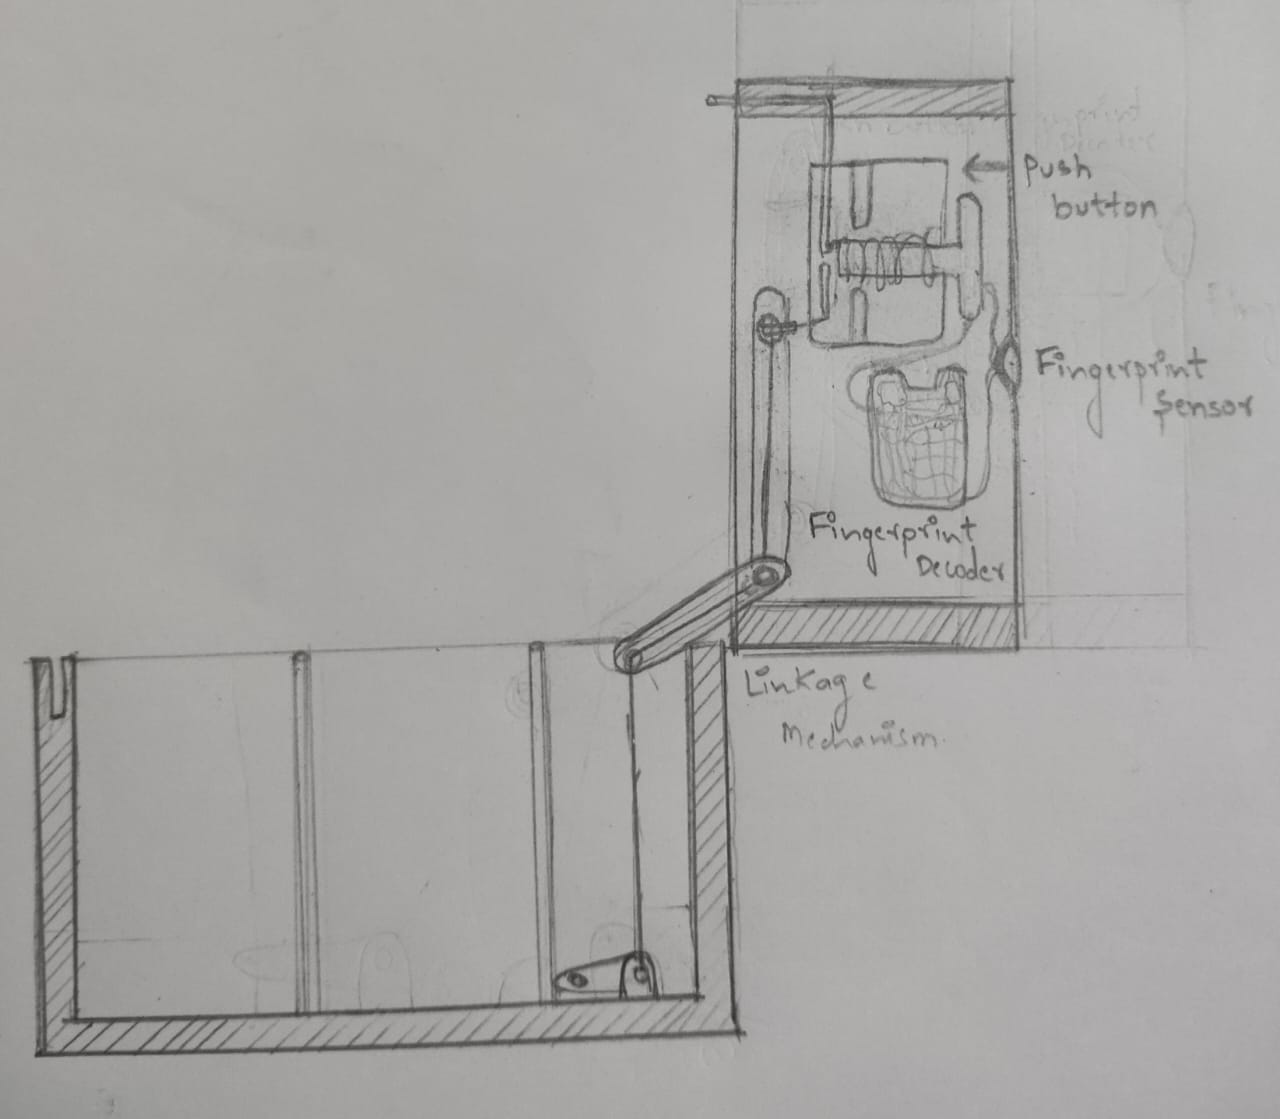 Push
button
Fingerprint
Sensor
Fingerprint
Decoder
Linkage
Mechanism.